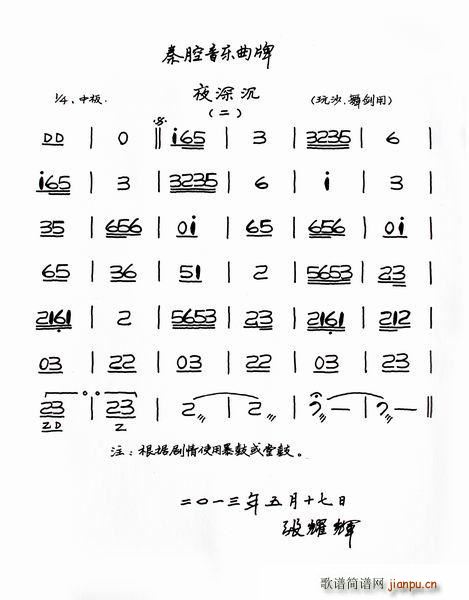 秦腔音乐曲牌
夜深沉
(二)
1/4、中板. (玩沙.舞剑用)
DD | 0 ‖ i165 | 3 | 3235 | 6 |
i65 | 3 | 3235 | 6 | i | 3 |
35 | 656 | 0i | 65 | 656 | 0i |
65 | 36 | 51 | 2 | 5653 | 23 |
2161 | 2 | 5653 | 23 | 2161 | 212 |
03 | 22 | 03 | 22 | 03 | 23 |
23 | 23 | 2 | 2 | 2 — | 2 — ‖
ZD Z
注：根据剧情使用暴鼓或堂鼓。
二〇一三年五月十七日
张耀辉
歌谱简谱网 jianpu.cn